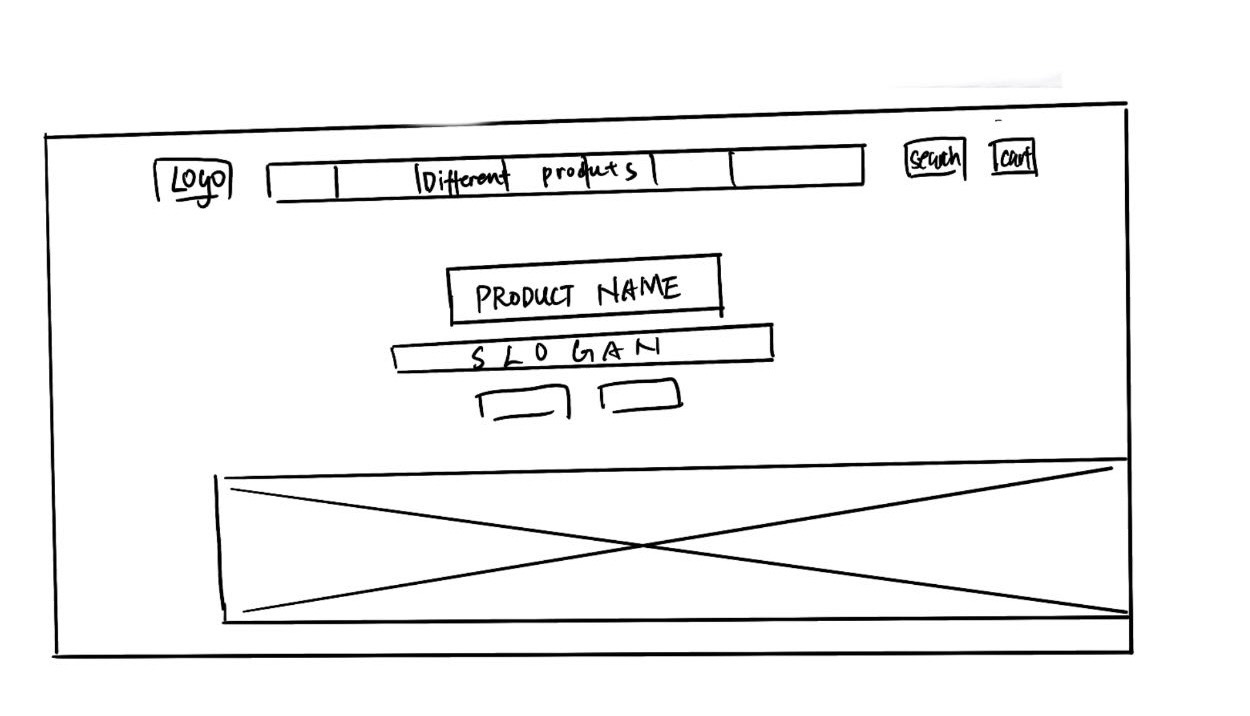 Logo Different produts search cart
PRODUCT NAME
SLOGAN